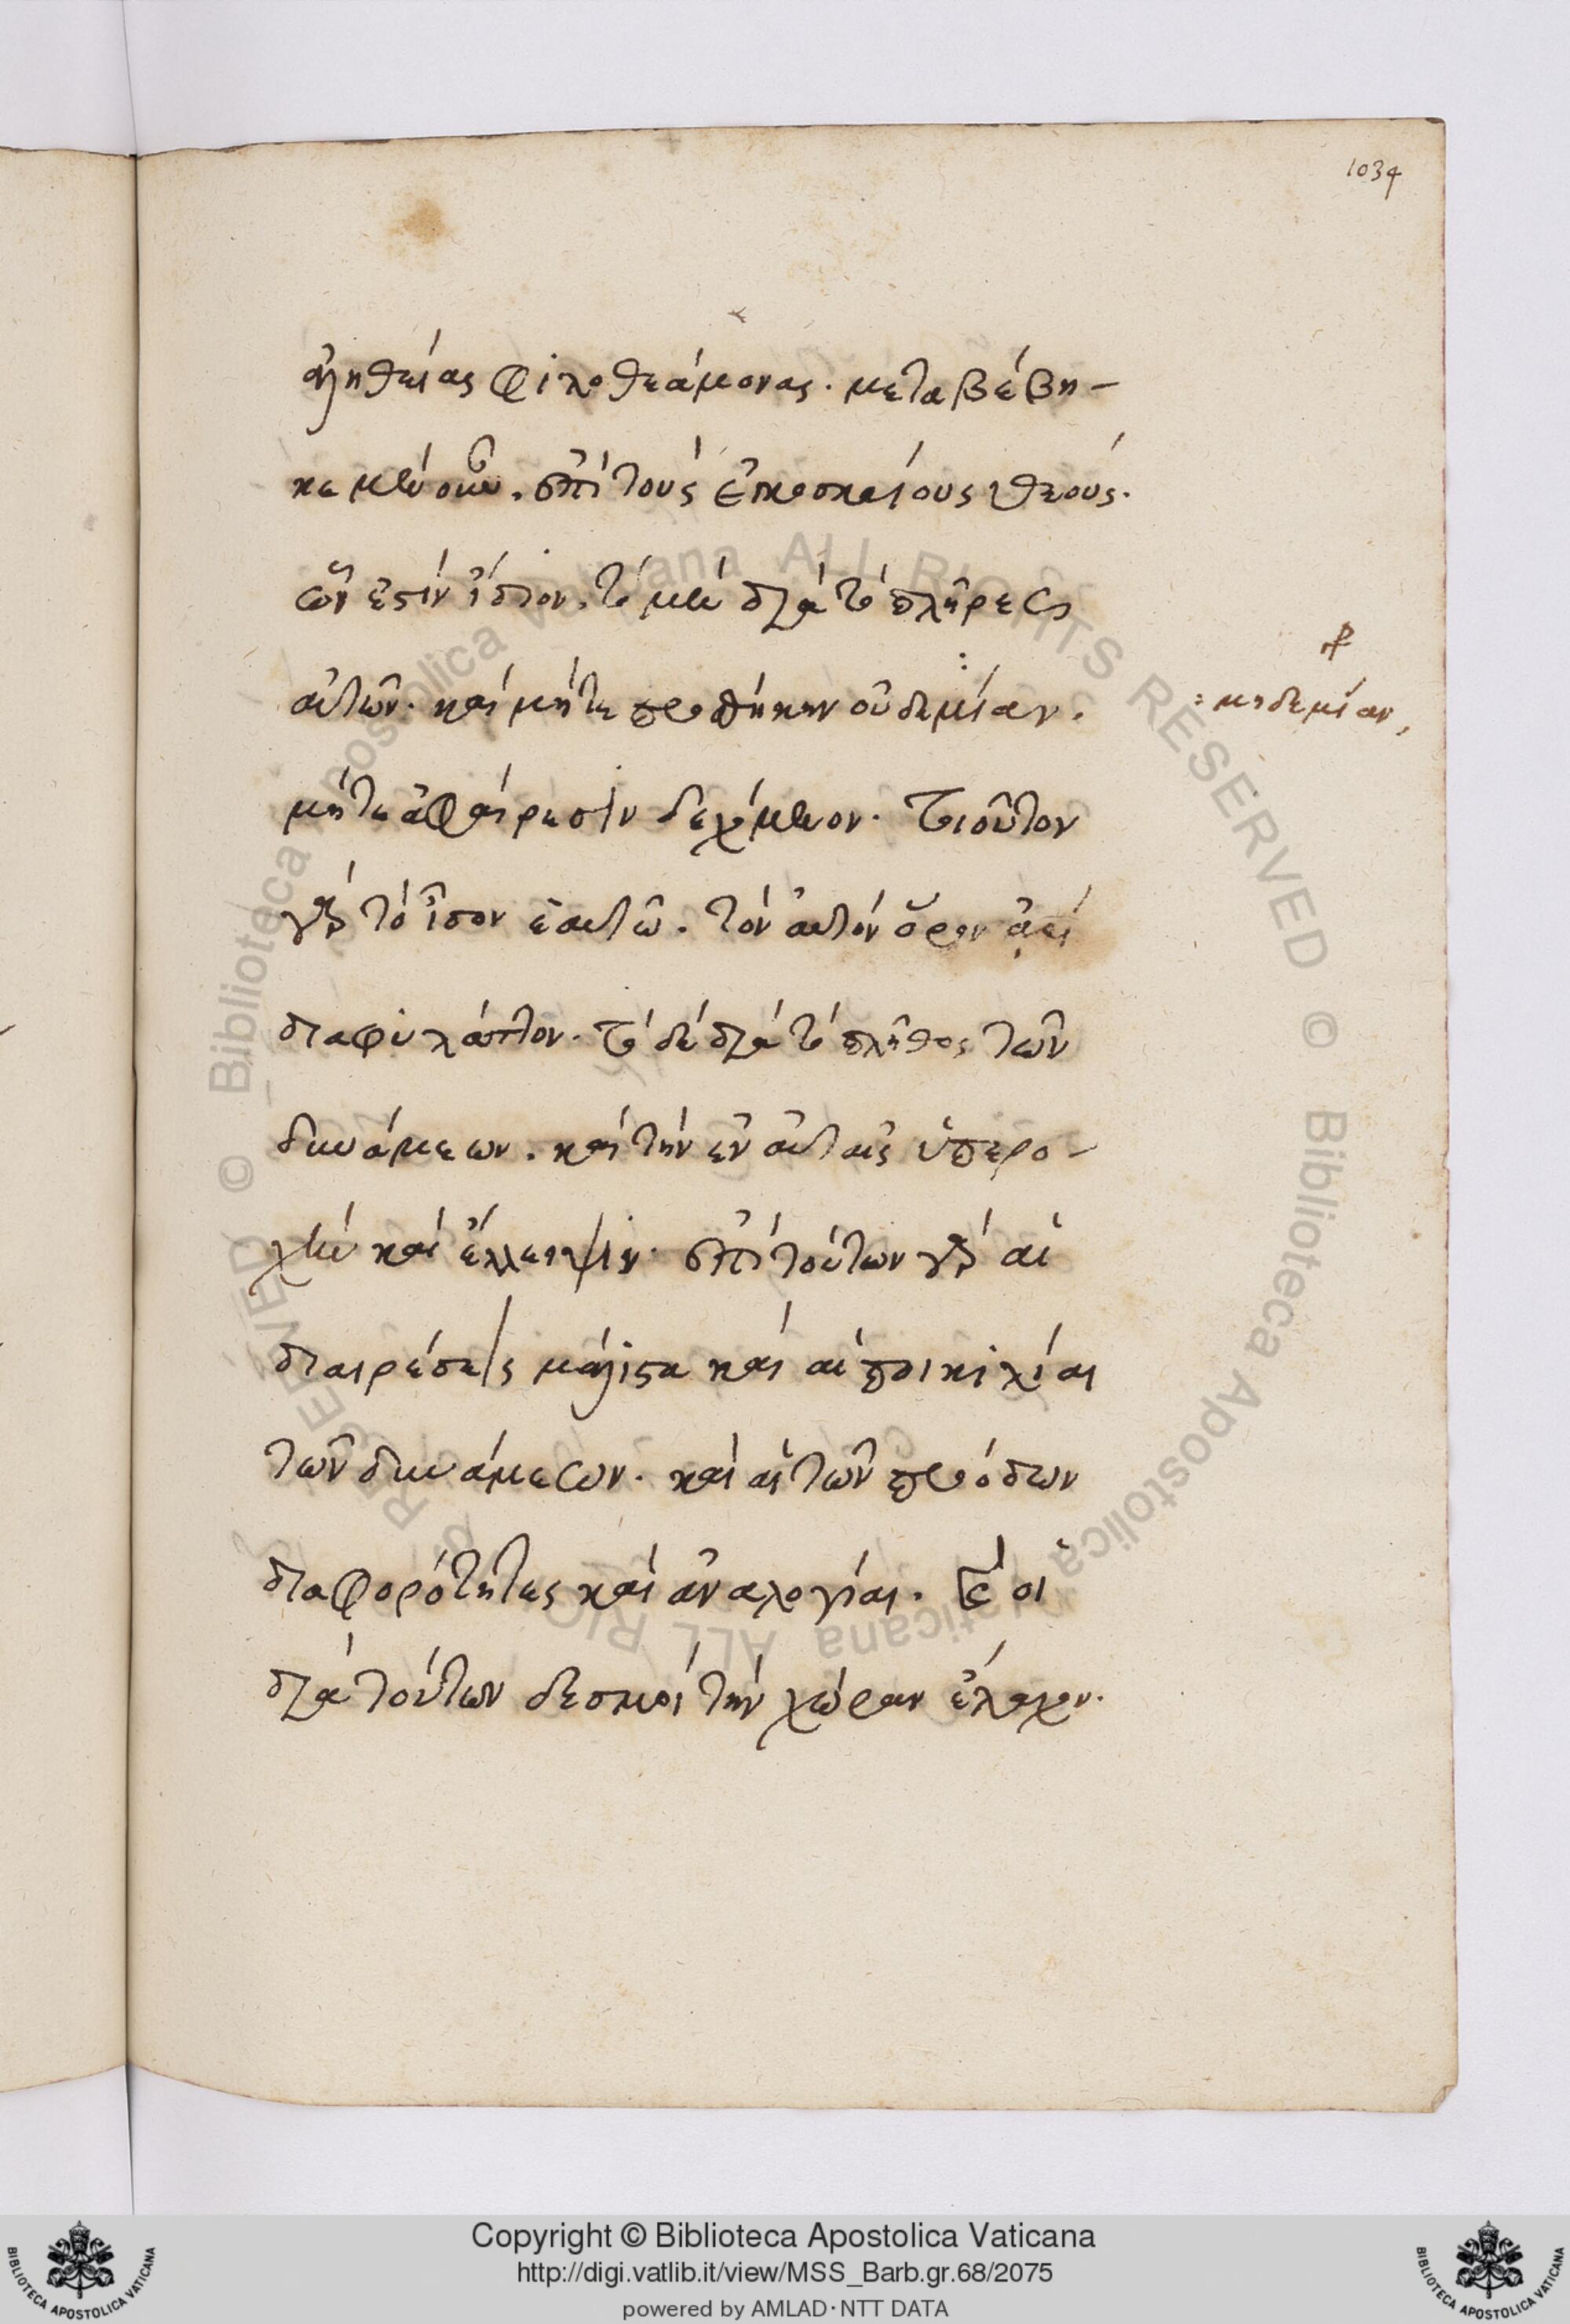 1034
ἀληθείας φιλοθεάμονας. μεταβέβη-
κε μὲν οὖν. ἐπὶ τοὺς ἐγκοσμίους θεούς.
ὧν ἐστὶν ἴδιον. τὸ μὲν διὰ τὸ πλῆρες
αὐτῶν. καὶ μήτε προσθήκην οὐδεμίαν.
: μηδεμίαν,
μήτε ἀφαίρεσιν δεχόμενον. τοιοῦτον
γὰρ τὸ ἴσον ἑαυτῶ. τὸν αὐτὸν ὅρον ἀεὶ
διαφυλάττον. τὸ δὲ διὰ τὸ πλῆθος τῶν
δυνάμεων. καὶ τὴν ἐν αὐταῖς ὑπερο-
χὴν καὶ ἔλλειψιν. ἐπὶ τούτων γὰρ αἱ
διαιρέσεις μάλιστα καὶ αἱ ποικιλίαι
τῶν δυνάμεων. καὶ αἱ τῶν προόδων
διαφορότητες καὶ ἀναλογίαι. καὶ οἱ
διὰ τούτων δεσμοὶ τὴν χώραν ἔλαχον.
© Biblioteca Apostolica Vaticana ALL RIGHTS RESERVED
Copyright © Biblioteca Apostolica Vaticana
http://digi.vatlib.it/view/MSS_Barb.gr.68/2075
powered by AMLAD·NTT DATA
BIBLIOTECA APOSTOLICA VATICANA
BIBLIOTECA APOSTOLICA VATICANA